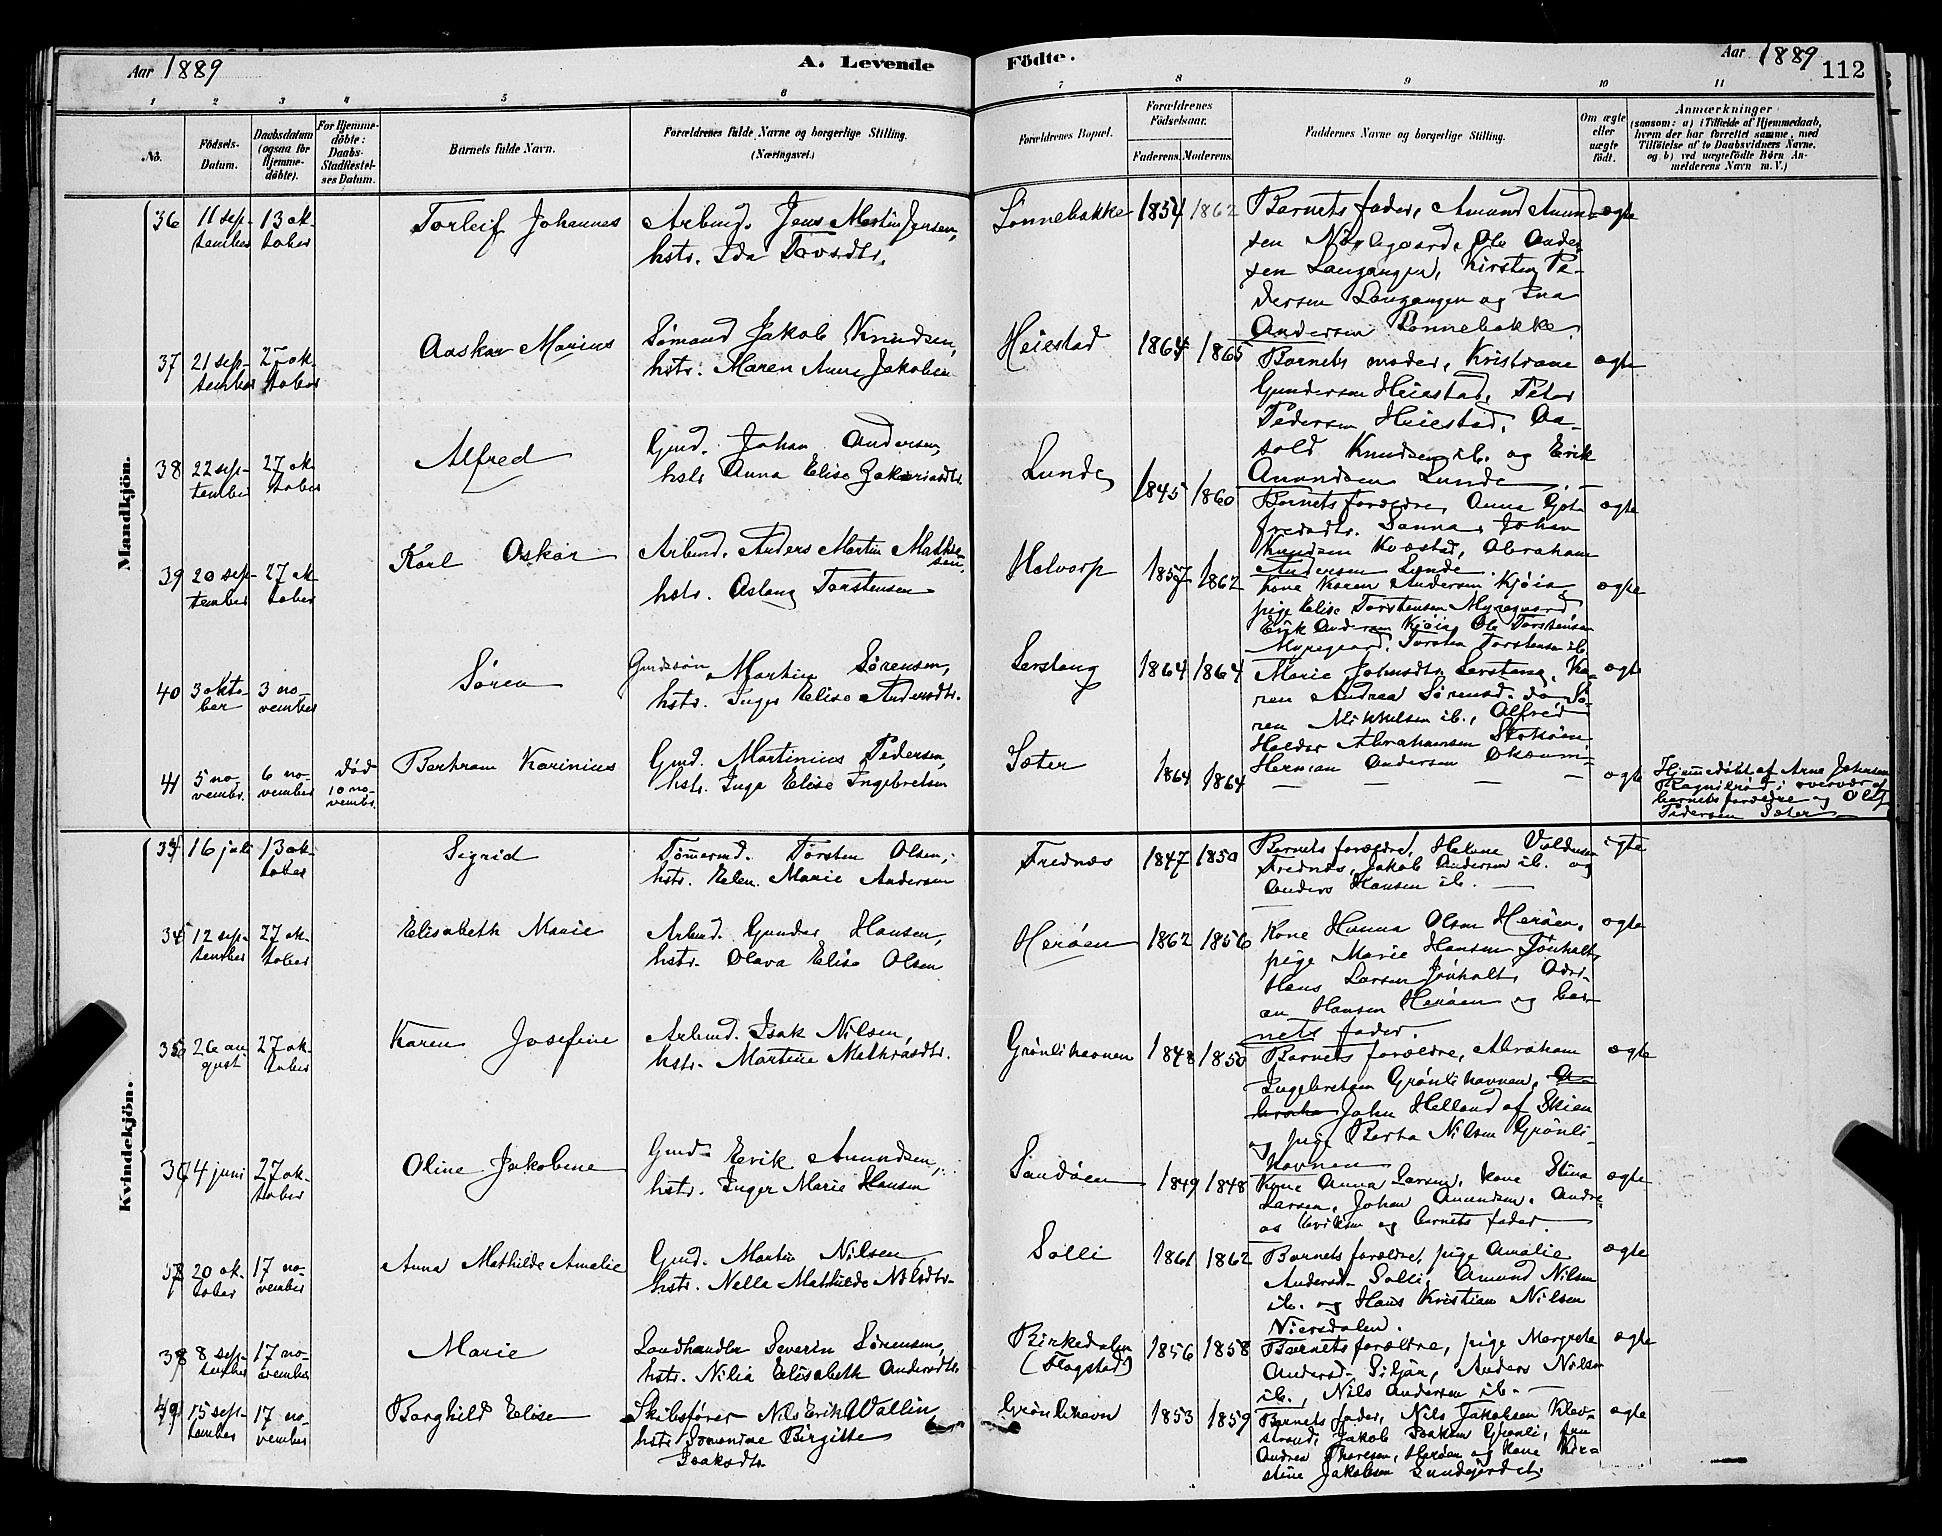 Aar 1889
A. Levende
Födte.
Aar 1889
112
1 2 3 4 5 6 7 8 9 10 11
No.
Födsels-
Datum.
Daabsdatum
(ogsaa for
Hjemme-
döbte).
For Hjemme-
döbte:
Daabs-
Stadfæstel-
ses Datum.
Barnets fulde Navn.
Forældrenes fulde Navne og borgerlige Stilling.
(Næringsvei.)
Forældrenes Bopæl.
Forældrenes
Födselsaar.
Faderens. Moderens.
Faddernes Navne og borgerlige Stilling.
Om ægte
eller
uægte
födt.
Anmærkninger
(saasom: a) i Tilfælde af Hjemmedaab,
hvem der har forrettet samme, med
Tilföielse af to Daabsvidners Navne,
og b) ved uægtefödte Börn An-
melderens Navn m. V.)
Mandkjön.
36 11 sep-
tember
13 ok-
tober
Torleif Johannes
Arbmd. Jens Martin Jensen,
hstr. Ida
Lønnebakke 1854 1862
Barnets fader, Amund Amund-
sen Ole Ander-
sen Langangen, Kirsten Pe-
dersen Langangen og Ina
Andersen Lønnebakke
ægte
37 21 sep-
tember
27 ok-
tober
Aaskar Marius
Sømand Jakob Knudsen,
hstr. Maren Anne Jakobsen
Heiestad 1864 1865
Barnets moder, Kristiane
Gundersen Heiestad, Peter
Pedersen Heiestad, Aa-
sold Knudsen ib. og Erik
Amundsen Lunde
ægte
38 22 sep-
tember
27 ok-
tober
Alfred
Gmd. Johan Andersen,
hstr Anna Elise Zakariasdtr.
Lunde 1845 1860
Barnets forældre, Anna Got-
fredsdtr. Sanna, Johan
Knudsen Kvestad, Abraham
Andersen Lunde
ægte
39 20 sep-
tember
27 ok-
tober
Karl Oskar
Arbmd. Anders Martin Mathie-
sen,
hstr. Aslaug Torstensen
Halvorp 1857 1862
Kone Karen Andersen Kjøia,
pige Elise Torstensen Myregaard,
Erik Andersen Kjøia, Ole Torstensen
Myregaard, Torsten Torstensen ib.
ægte
40 3 okto-
ber
3 no-
vember
Søren
Gmdssøn Martin Sørensen,
hstr. Inger Elise Andersdtr.
Lerstang 1864 1864
Marie Johnsdtr. Lerstang, Ka-
ren Andrea Sørensd. do, Sø-
ren Mikkelsen ib., Alfred
Halvor Abrahamsen
Herman Andersen
ægte
41 5 no-
vembr.
6 no-
vember
død
10 no-
vembr.
Bertram Karinius
Gmd. Martinius Pedersen,
hstr. Inga Elise Ingebretsen
Sæter 1864 1864
— — — —
ægte
Hjemmedøbt af Arne Johnsen
i overvær af
barnets forældre og Oluf
Pedersen Sæter
Kvindekjön.
34 16 juli 13 ok-
tober
Sigrid
Tømermd. Torsten Olsen,
hstr. Elen Marie Andersen
Frednæs 1847 1850
Barnets forældre, Helene
Frednæs, Jakob Andersen ib. og
Anders Hansen ib.
ægte
35 12 sep-
tember
27 ok-
tober
Elisabeth Marie
Arbmd. Gunder Hansen,
hstr. Olava Elise Olsen
Herøen 1862 1856
Kone Hanna Olsen Herøen,
pige Marie Hansen Jønholt,
Hans Larsen Jønholt, Adri-
an Hansen Herøen og bar-
nets fader.
ægte
36 26 au-
gust
27 ok-
tober
Karen Josefine
Arbmd. Isak Nilsen,
hstr. Martine Mathiasdtr.
Grønlihavnen 1848 1850
Barnets forældre, Abraham
Ingebretsen Grønlihavnen,
John Helland af Skien
og pige Berta Nilsen Grønli-
havnen
ægte
37 4 juni 27 ok-
tober
Oline Jakobine
Gmd. Eerik Amundsen,
hstr. Inger Marie Hansen
Sandøen 1849 1848
Kone Anna Larsen, kone Stina
Larsen, Johan Amundsen, Andre-
as Eeriksen og barnets fader.
ægte
38 20 ok-
tober
17 no-
vember
Anna Mathilde Amalie
Gmd. Martin Nilsen
hstr. Nella Mathilde Nilsdtr.
Solli 1861 1862
Barnets forældre, pige Amalie
Andersd. Solli, Amund Nilsen
ib. og Hans Kristian Nilsen
Niersdalen.
ægte
39 8 sep-
tember
17 no-
vember
Marie
Landhandler Severin Sørensen,
hstr. Nilia Elisabeth Andersdtr.
Birkedalen
(Flogstad) 1856 1858
Barnets forældre, pige Margrete
Andersd. Siljan, Anders Nilsen
ib., Nils Andersen ib.
ægte
15 sep-
tember
17 no-
vember
Borghild Elise
Skibsfører Nils Erik Wallin
hstr. Birgitte
Isaksdtr.
Grønlihavn 1853 1859
Barnets fader, Nils Jakobsen Klev-
strand, Jakob Isaksen Grønli, fru
Andrea Thoresen, Herøen og kone Kir-
stine Jakobsen Sundsjordet.
ægte